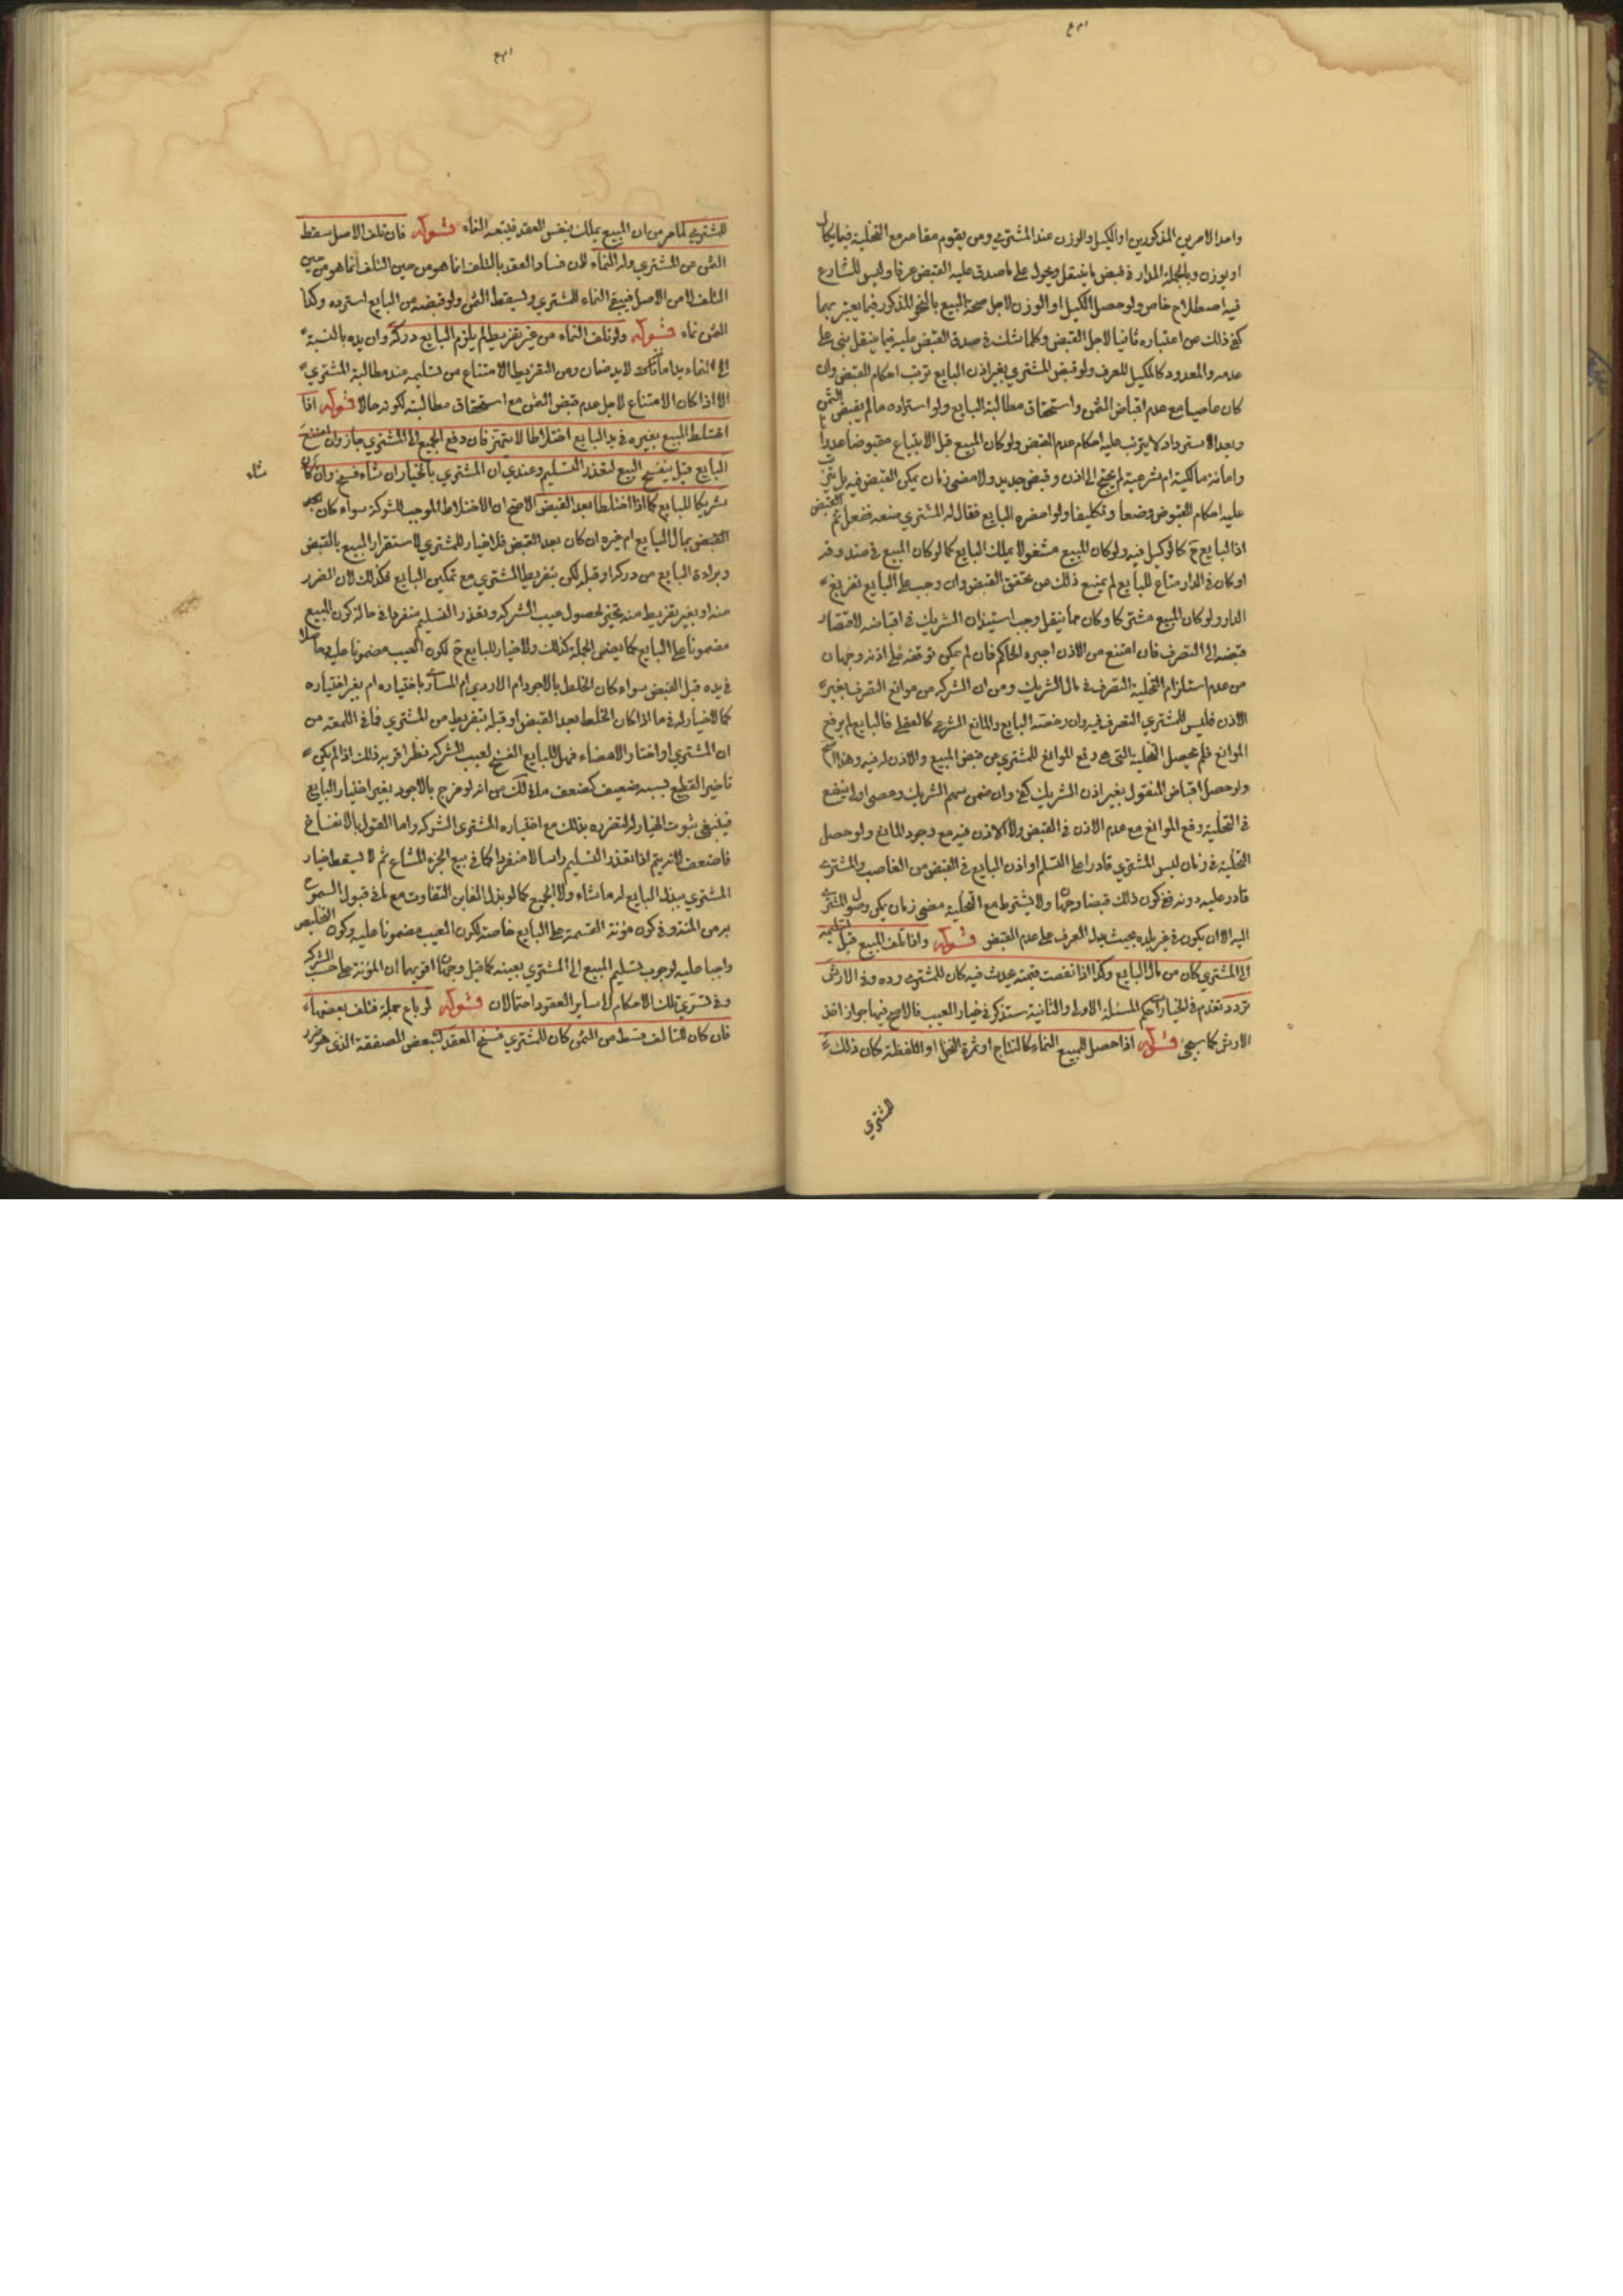 واحد الامرين المذكورين او الكيل والوزن عند المشتري ومن يقوم مقامه مع التخلية فيما يكال
او يوزن وبالجملة المدار في قبض ما ينتقل ويحول على ما صدق عليه القبض عرفا وليس للشارع
فيه اصطلاح خاص ولو حصل الكيل او الوزن لاجل صحة البيع بالنحو المذكور فيما يعتبر بهما
كفى ذلك عن اعتباره ثانيا لاجل القبض وكلما شك في صدق القبض عليه فيما ينقل بنى على
عدمه والمعدود كالمكيل للعرف ولو قبض المشتري بغير اذن البايع ترتب احكام القبض وان
كان عاصيا مع عدم اقباض الثمن واستحقاق مطالبة البايع ولو استراده ما لم يقبض الثمن
وبعد الاسترداد لا يترتب عليه احكام عدم القبض ولو كان المبيع قبل الابتياع مقبوضا عدوانا
وامانة مالكية ام شرعية لم يحتج الى اذن وقبض جديد ولا مضي زمان يمكن القبض فيه بل يترتب
عليه احكام القبوض وضعا وتكليفا ولو احضره البايع فقال له المشتري ضعه ففعل تم القبض
اذ البايع ح كالوكيل فيه ولو كان المبيع مشغولا بملك البايع كما لو كان المبيع في صندوقه
او كان في الدار متاع للبايع لم يمنع ذلك من تحقق القبض وان وجب على البايع تفريغ
الدار ولو كان المبيع مشتركا وكان مما ينقل وجب استيذان الشريك في اقباضه لاقتضاء
قبضه الى التصرف فان امتنع من الاذن اجبره الحاكم فان لم يمكن توقفه على اذنه وجهان
من عدم استلزام التخلية التصرف في مال الشريك ومن ان الشركة من موانع التصرف بغير
الاذن فليس للمشتري التصرف فيه وان رخصه البايع والمانع الشرعي كالعقلي فالبايع لم يرفع
الموانع فلم يحصل التخلية التي هي رفع الموانع للمشتري عن قبض المبيع والاذن له فيه وهذا اصح
ولو حصل اقباض المنقول بغير اذن الشريك كفى وان ضمن سهم الشريك وعصى
في التخلية رفع الموانع مع عدم الاذن في القبض ولا الاذن فيه مع وجود المانع ولو حصل
التخلية في زمان ليس المشتري قادرا على التسلم او اذن البايع في القبض من الغاصب والمشتري
قادر عليه دونه ففي كون ذلك قبضا وجهان ولا يشترط مع التخلية مضي زمان يمكن وصول المشتري
اليه الا ان يكون في غير بلده بحيث يدل العرف على عدم القبض قوله واذا تلف المبيع قبل تسليمه
الى المشتري كان من مال البايع وكذا اذا نقصت قيمته بحدث فيه كان للمشتري رده وفي الارش
تردد تقدم في الخيارات حكم المسئلة الاولى والثانية ستذكر في خيار العيب فالاصح فيها جواز اخذ
الارش كما سيجئ قوله اذا حصل للمبيع النماء كالنتاج او ثمرة النخل او اللقطة كان ذلك
للمشتري
للمشتري لما مر من ان المبيع يملك بنفس العقد فيتبعه النماء قوله فان تلف الاصل سقط
الثمن عن المشتري وله النماء لان فساد العقد بالتلف انما هو من حين التلف انما هو من حين
التلف لا من الاصل فيبقى النماء للمشتري ويسقط الثمن ولو قبضه من البايع استرده وكذا
الثمن نماء قوله ولو تلف النماء من غير تفريط لم يلزم البايع دركه وان يده بالنسبة
الى النماء يد امانة لا يد ضمان ومن التفريط الامتناع من تسليمه عند مطالبة المشتري
الا اذا كان الامتناع لاجل عدم قبض الثمن مع استحقاق مطالبته لكونه حالا قوله اذا
اختلط المبيع بغيره في يد البايع اختلاطا لا يتميز فان دفع الجميع الى المشتري جاز وان امتنع
البايع قيل ينفسخ البيع لتعذر التسليم وعندي ان المشتري بالخيار ان شاء فسخ وان شاء كان
شريكا للبايع كما اذا اختلطا بعد القبض الاصح ان الاختلاط الموجب للشركة سواء كان بعد
القبض بمال البايع ام غيره ان كان بعد القبض فلا خيار للمشتري لاستقرار البيع بالقبض
وبراءة البايع من دركه او قبله لكن بتفريط المشتري مع تمكين البايع فكذلك لان الضرر
منه او بغير تفريط منه تخير لحصول عيب الشركة وتعذر التسليم منفردا في حالة كون المبيع
مضمونا على البايع كما يضمن الجملة كذلك ولا خيار للبايع ح لكون العيب مضمونا عليه
في يده قبل القبض سواء كان الخلط بالاجود ام الاردي ام المساوي باختياره ام بغير اختياره
كما لا خيار له في ما اذا كان الخلط بعد القبض او قبله بتفريط من المشتري فما في اللمعة من
ان المشتري لو اختار الامضاء فهل للبايع الفسخ لعيب الشركة نظر اقربه ذلك اذا لم يكن
تاخير القطع بسببه ضعيف كضعف من انه لو مزج بالاجود بغير اختيار البايع
فينبغي ثبوت الخيار له لتضرره بذلك مع اختياره المشتري الشركة واما القول بالانفساخ
فاضعف لانه يتم اذا تعذر التسليم راسا لا منفردا كما في بيع الجزء المشاع ثم لا يسقط خيار
المشتري ببذل البايع له ما شاء ولا الجميع كما لو بذل الغابن التفاوت مع ما في قبول
به من المنة وفي كون مؤنة القسمة على البايع خاصة لكون العيب مضمونا عليه وكون التخليص
واجبا عليه لوجوب تسليم المبيع الى المشتري بعينه كما قيل وجهان اقويهما ان المؤنة على حسب الشركة
وفي تسري تلك الاحكام الى ساير العقود احتمالان قوله لو باع جملة فتلف بعضها
فان كان للتالف قسط من الثمن كان للمشتري فسخ العقد لتبعض الصفقة الذي هو ضرر